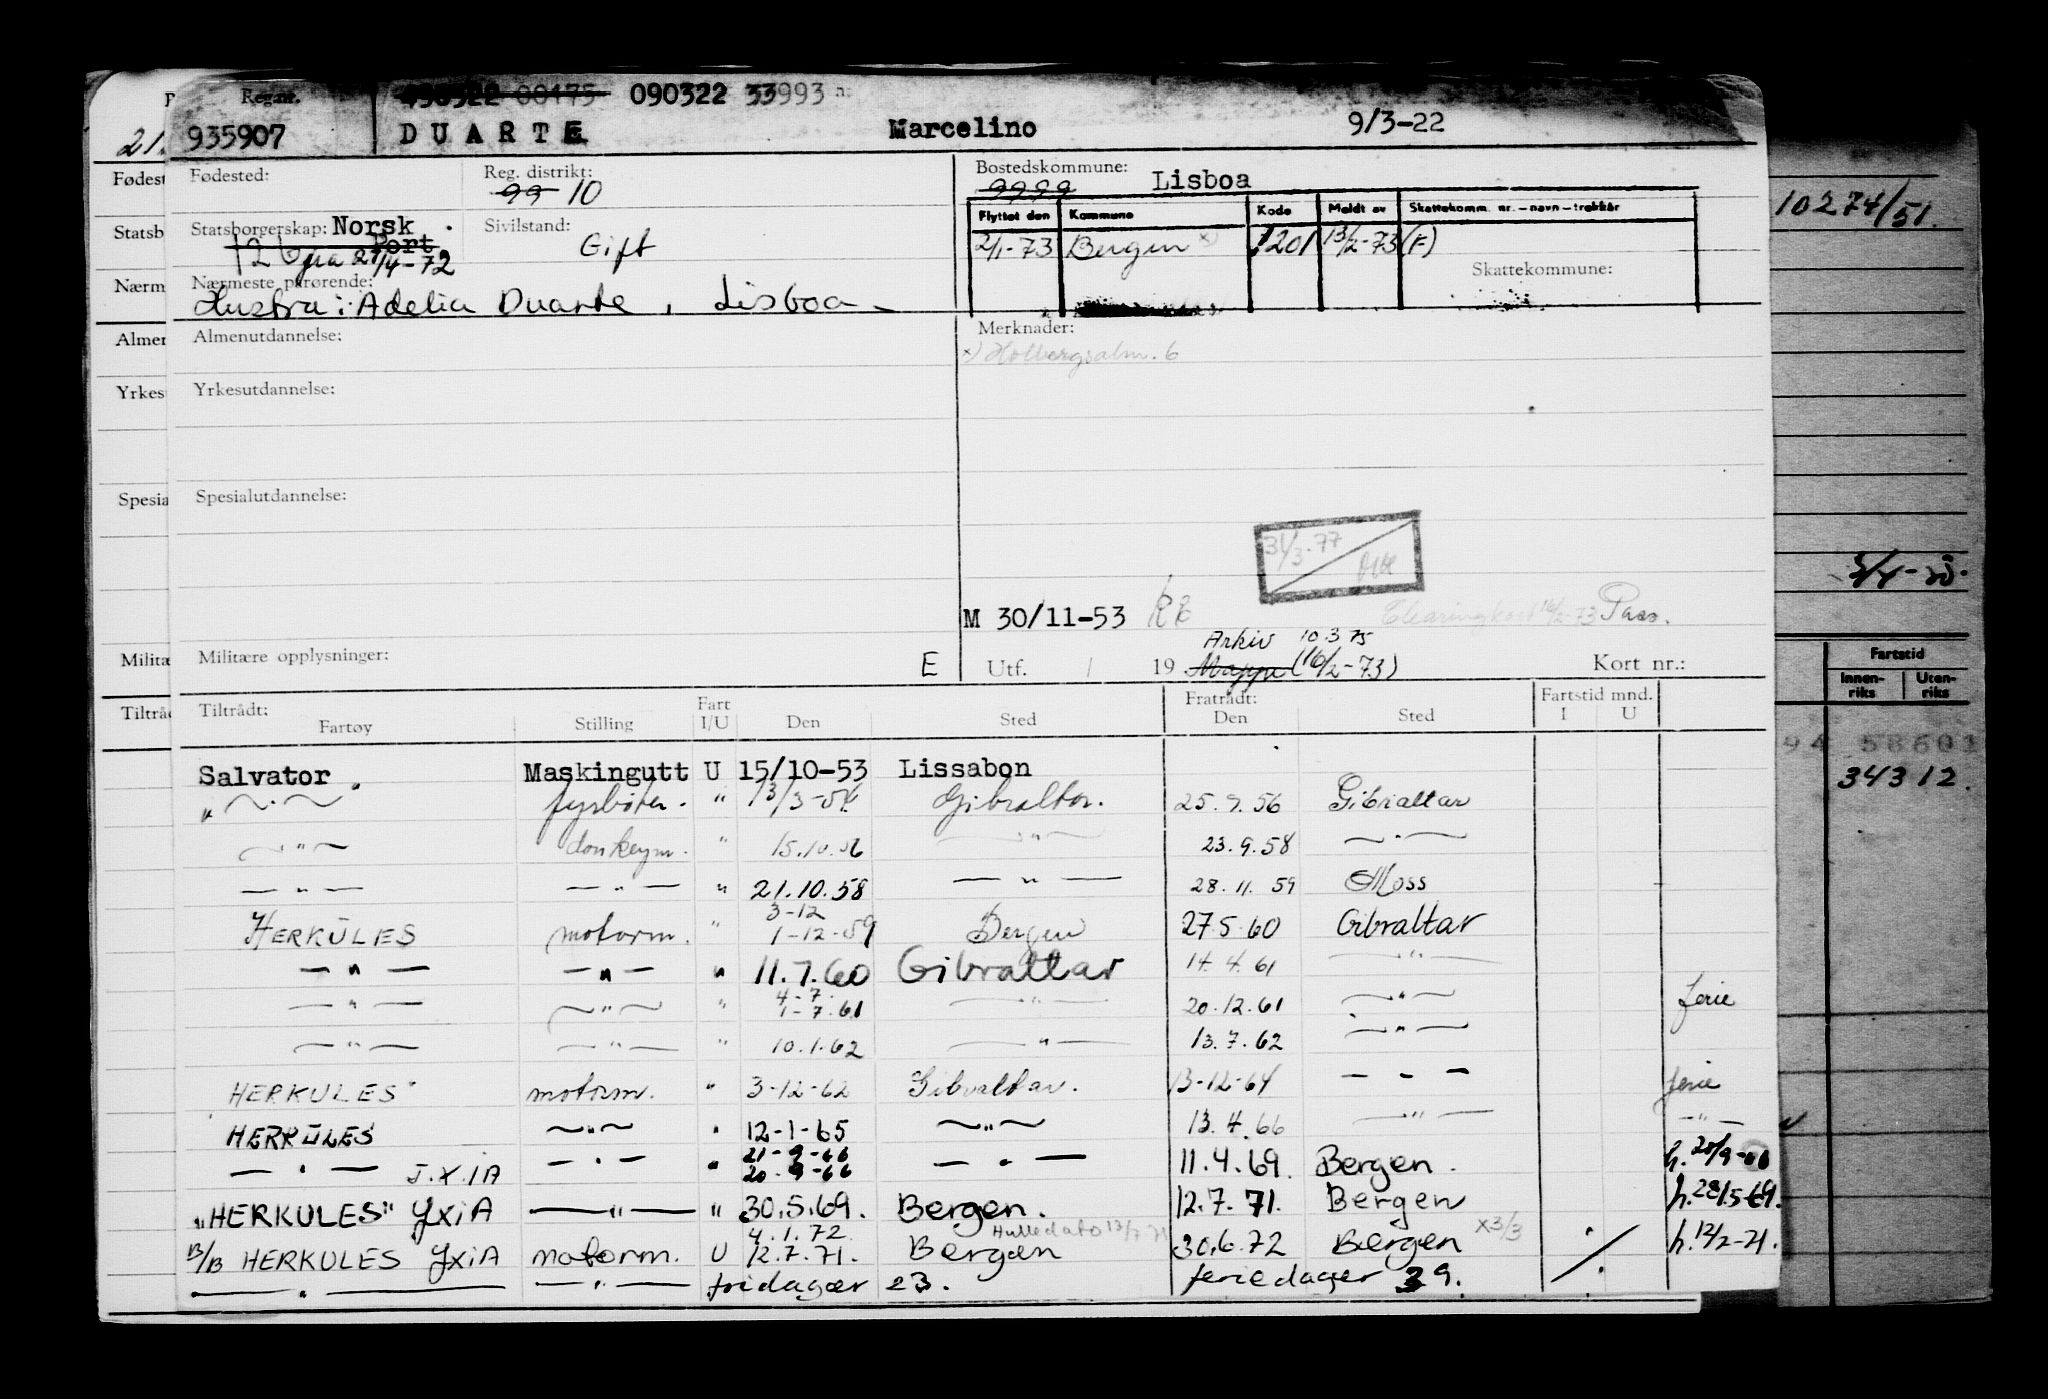 Reg.nr. 090322 33993
935907 DUARTE Marcelino 9/3-22
Fødested: Reg. distrikt: Bostedskommune:
99 10 9999 Lisboa
Flyttet den Kommune Kode Meldt av Skattekomm. nr. – navn – trekkår
Statsborgerskap: Norsk Sivilstand: Gift
Port
126 fra 27/4-72
2/1-73 Bergen x) 1201 13/2-73 (F)
Skattekommune:
Nærmeste pårørende:
Hustru: Adelia Duarte, Lisboa
Almenutdannelse: Merknader:
x) Holbergsalm. 6
Yrkesutdannelse:
Spesialutdannelse:
31/3-77
M 30/11-53 Clearingkort 16/2-73 Pass.
Arkiv 10.3.75
Militære opplysninger: E Utf. 19 Mappe (16/2-73) Kort nr.:
Tiltrådt: Fratrådt: Fartstid mnd.
Fartøy Stilling Fart I/U Den Sted Den Sted I U
Salvator. Maskingutt U 15/10-53 Lissabon
" fyrbøter. " 13/3-54 Gibraltar. 25.9.56 Gibraltar
" donkeym. " 15.10.56 " 23.9.58 "
" " " 21.10.58 " 28.11.59 Moss
3-12
HERKULES motorm. " 1-12-59 Bergen 27.5.60 Gibraltar
" " " 11.7.60 Gibraltar 14.4.61 "
4-7.
" " " 1-7.61 " 20.12.61 " ferie
" " " 10.1.62 " 13.7.62 "
HERKULES" motorm. " 3-12-62 Gibraltar. 13-12-64 " ferie
HERKULES " " 12-1-65 " 13.4.66 " "
21-9-66
" J.X.I.A " " 20-9-66 " 11.4.69. Bergen. h. 20/9-66
"HERKULES" JXiA " " 30.5.69. Bergen. 12.7.71. Bergen h. 28/5-69.
4.1.72. Hulledato 13/7 71 x3/3
B/B HERKULES JXiA motorm. U 12.7.71. Bergen 30.6.72 Bergen h. 12/7-71.
" " fridager 23. feriedager 39.
21.
Fødest
Statsb
Nærm
Almer
Yrkes
Spesia
Militæ
Tiltråd
10274/51.
Fartstid
Innen-riks Uten-riks
94 58601
34312.